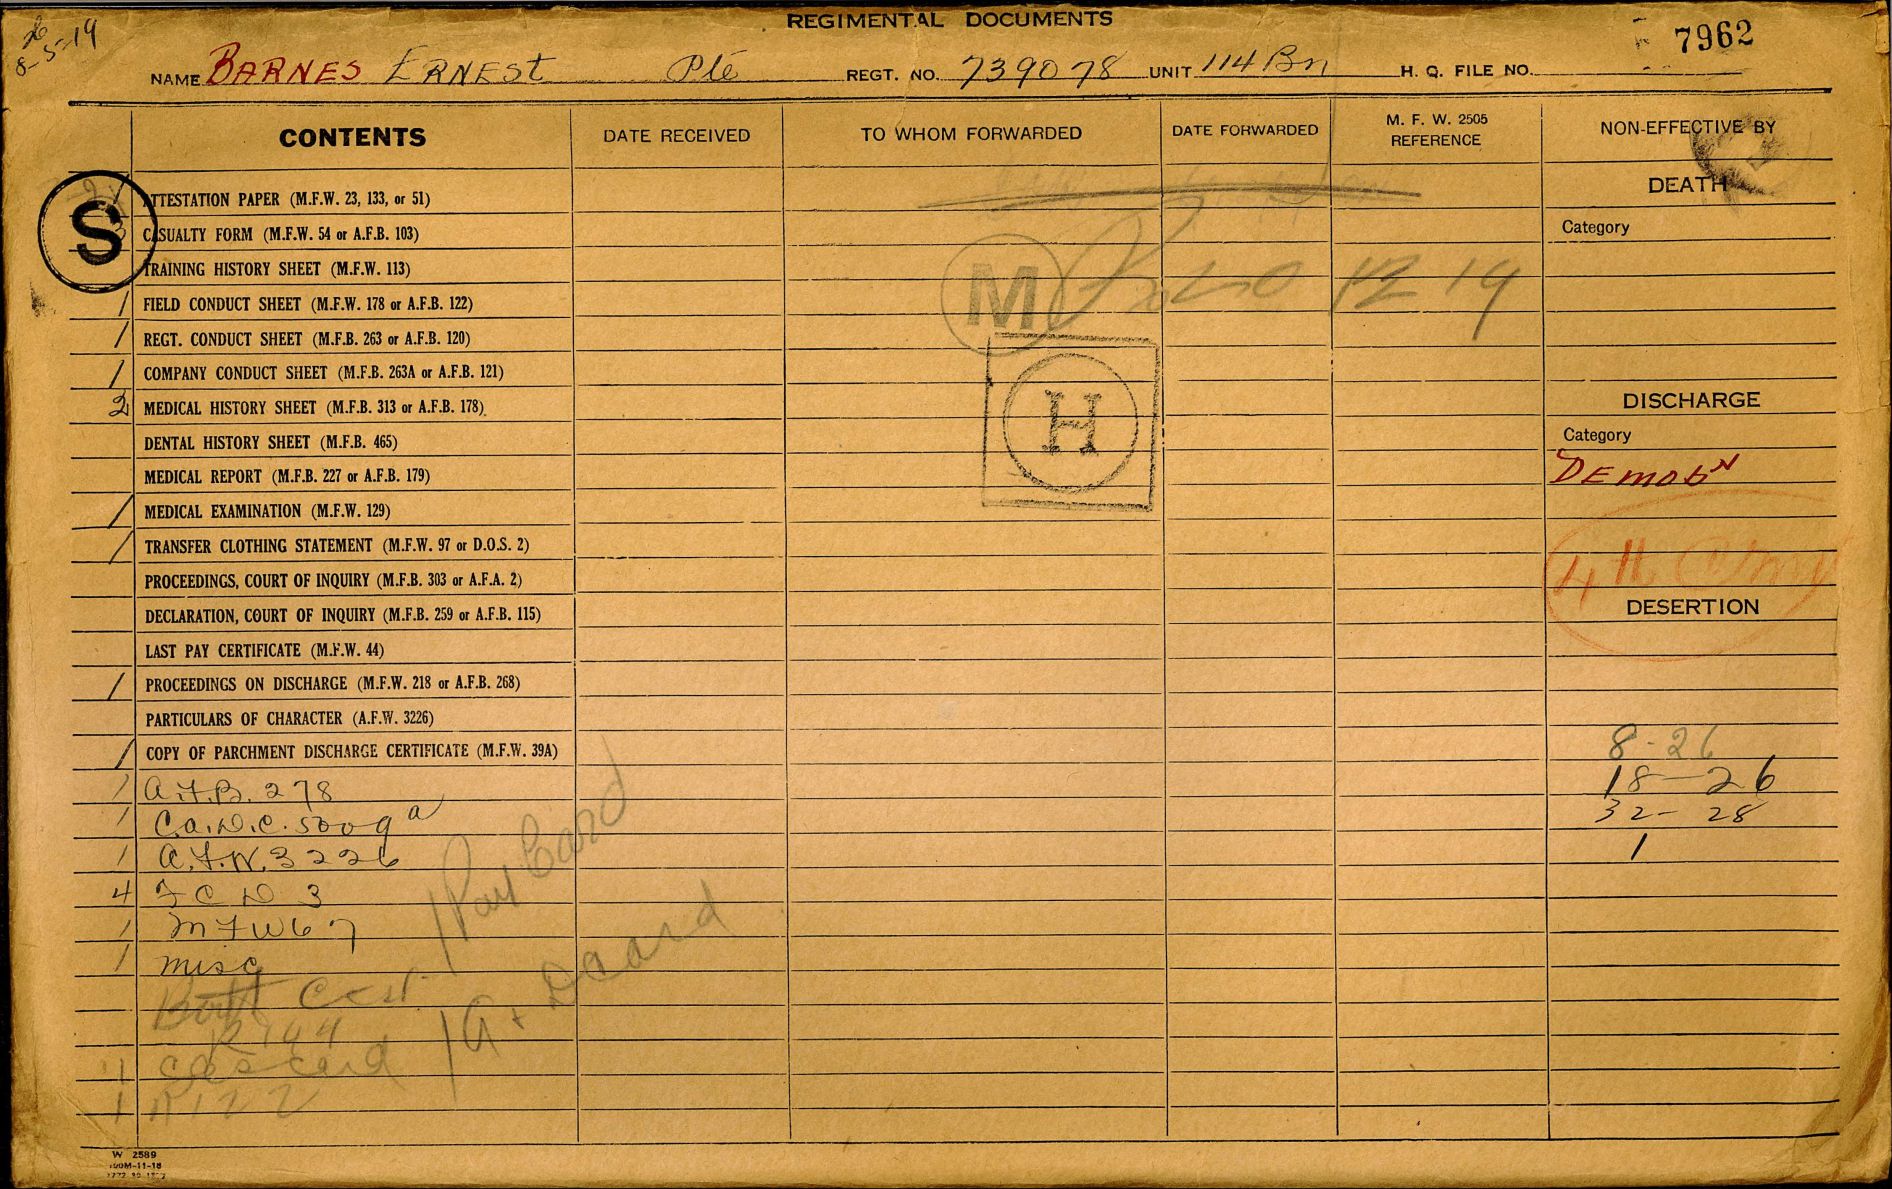 8-5-19
REGIMENTAL DOCUMENTS
7962
NAME BARNES ERNEST Pte REGT. NO. 739078 UNIT 114 Bn H. Q. FILE NO.
CONTENTS DATE RECEIVED TO WHOM FORWARDED DATE FORWARDED M. F. W. 2505 REFERENCE NON-EFFECTIVE BY
DEATH
Category
S
ATTESTATION PAPER (M.F.W. 23, 133, or 51)
CASUALTY FORM (M.F.W. 54 or A.F.B. 103)
TRAINING HISTORY SHEET (M.F.W. 113)
1 FIELD CONDUCT SHEET (M.F.W. 178 or A.F.B. 122)
1 REGT. CONDUCT SHEET (M.F.B. 263 or A.F.B. 120)
1 COMPANY CONDUCT SHEET (M.F.B. 263A or A.F.B. 121)
2 MEDICAL HISTORY SHEET (M.F.B. 313 or A.F.B. 178)
DENTAL HISTORY SHEET (M.F.B. 465)
MEDICAL REPORT (M.F.B. 227 or A.F.B. 179)
1 MEDICAL EXAMINATION (M.F.W. 129)
1 TRANSFER CLOTHING STATEMENT (M.F.W. 97 or D.O.S. 2)
PROCEEDINGS, COURT OF INQUIRY (M.F.B. 303 or A.F.A. 2)
DECLARATION, COURT OF INQUIRY (M.F.B. 259 or A.F.B. 115)
LAST PAY CERTIFICATE (M.F.W. 44)
1 PROCEEDINGS ON DISCHARGE (M.F.W. 218 or A.F.B. 268)
PARTICULARS OF CHARACTER (A.F.W. 3226)
1 COPY OF PARCHMENT DISCHARGE CERTIFICATE (M.F.W. 39A)
1 A.F.B. 278
1 C.A.D.C. 5009a
1 A.F.W. 3226
4 F C D 3
1 M F W 67
1 Misc
Cert
1 Cas card
1 R122
1 Pay Card
1 A + D Card
M
12 19
H
DISCHARGE
Category
DEMOBN
4th
DESERTION
8-26
18-26
32-28
1
W 2589
100M-11-18